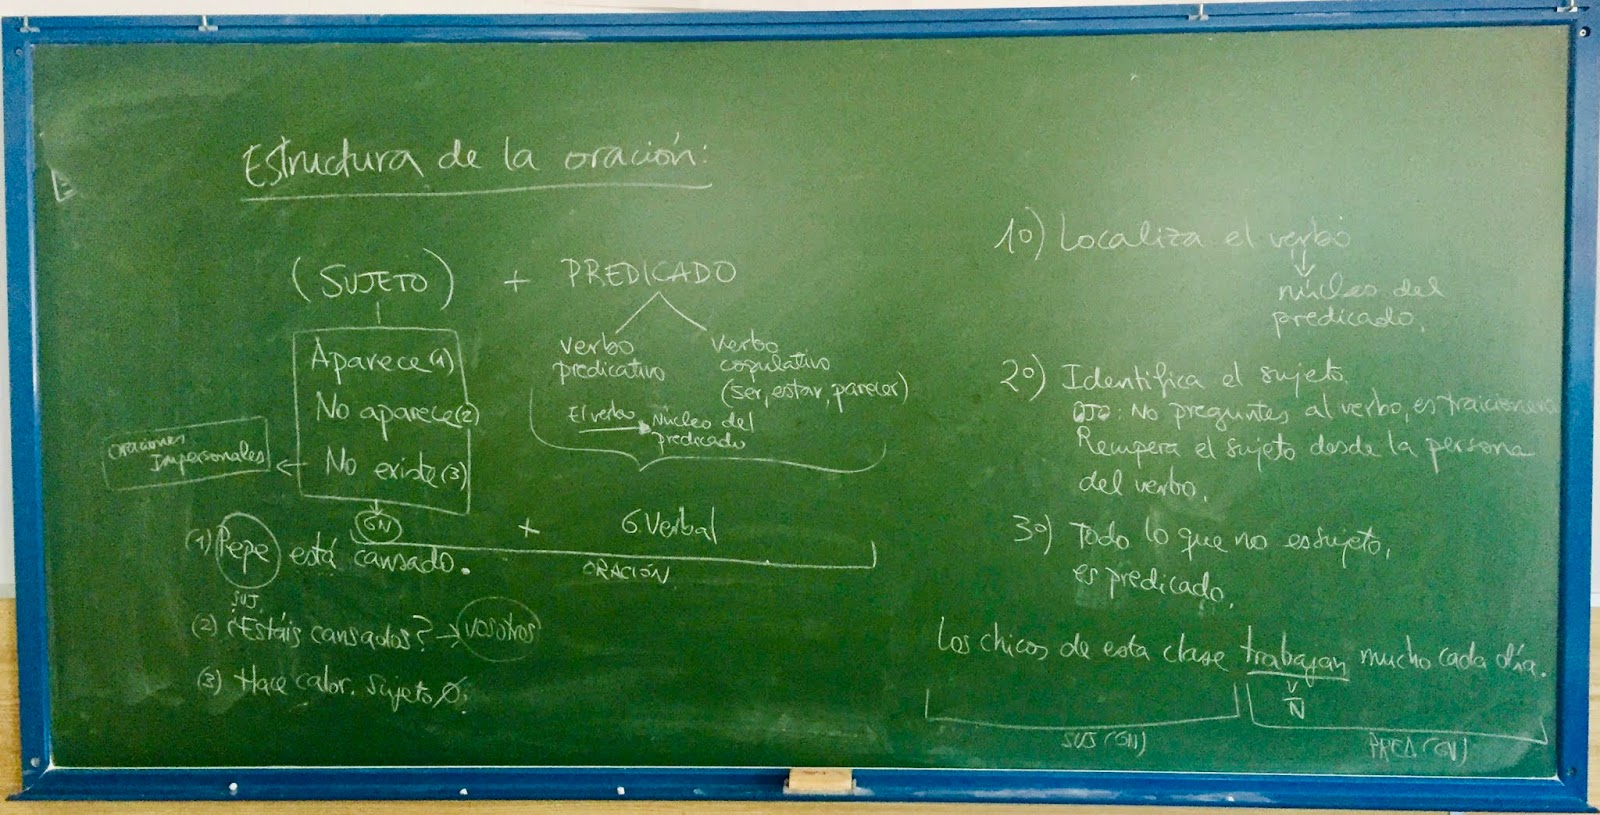 Estructura de la oración:
(SUJETO) + PREDICADO
Aparece (1)
No aparece (2)
No existe (3)
Oraciones
Impersonales
verbo
predicativo
verbo
copulativo
(ser, estar, parecer)
El verbo → Núcleo del
predicado
GN + G.Verbal
ORACIÓN
(1) Pepe está cansado.
SUJ.
(2) ¿Estáis cansados? → vosotros
(3) Hace calor. Sujeto Ø.
1º) Localiza el verbo
núcleo del
predicado.
2º) Identifica el sujeto.
OJO: No preguntes al verbo, es traicionero
Recupera el sujeto desde la persona
del verbo.
3º) Todo lo que no es sujeto,
es predicado.
Los chicos de esta clase trabajan mucho cada día.
V
N
SUJ (GN)
PRED (GV)